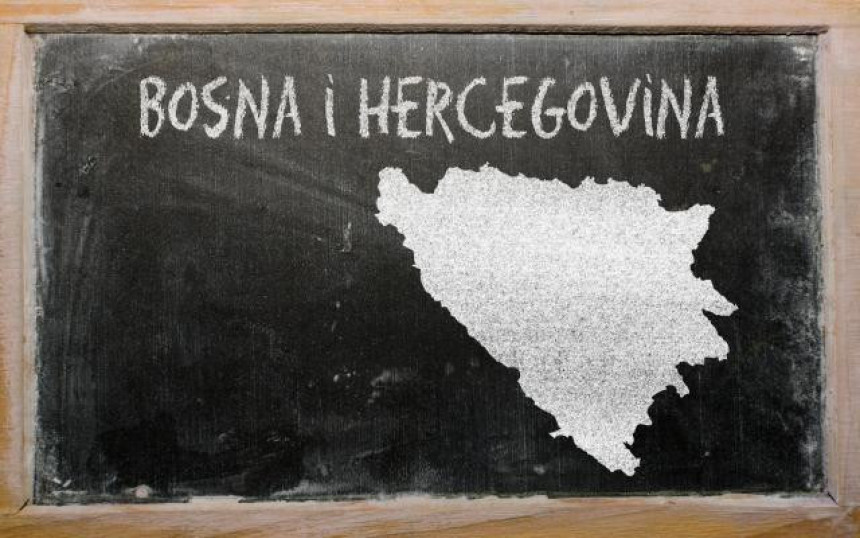 BOSNA i HERCEGOVINA